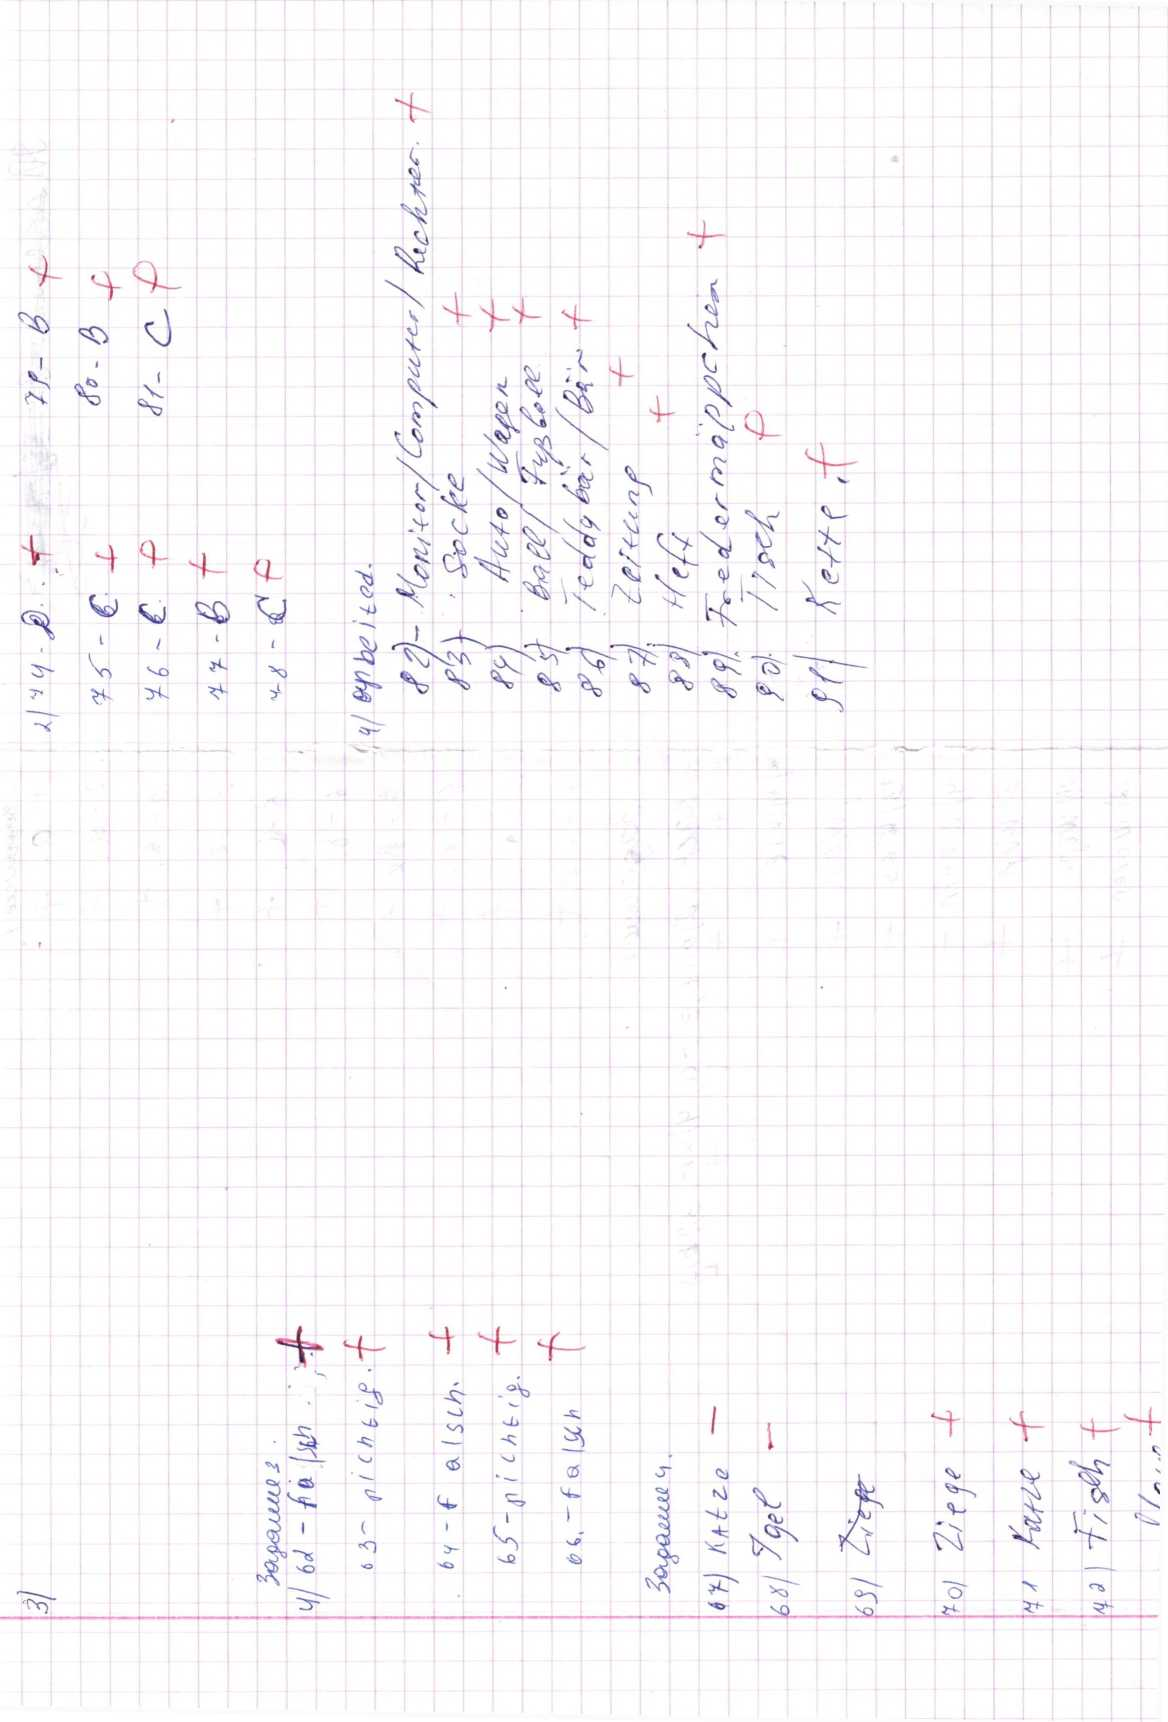 3)
Задание 3.
4) 62 - falsch. +
63 - richtig. +
64 - falsch. +
65 - richtig. +
66. - falsch +
Задание 4.
67) Katze -
68) Igel -
69) Ziege
70) Ziege +
71 Katze +
72) Fisch +
2) 74 - D. +
75 - C +
76 - C. +
77 - B +
78 - C +
79 - B +
80 - B +
81 - C +
4)
82) - Monitor / Computer / Rechner. +
83) Socke +
84) Auto / Wagen +
85) Ball / Fußball +
86) Teddybär / Bär +
87) Zeitung +
88) Heft +
89) Federmäppchen +
90) Tisch +
91) Kette. +